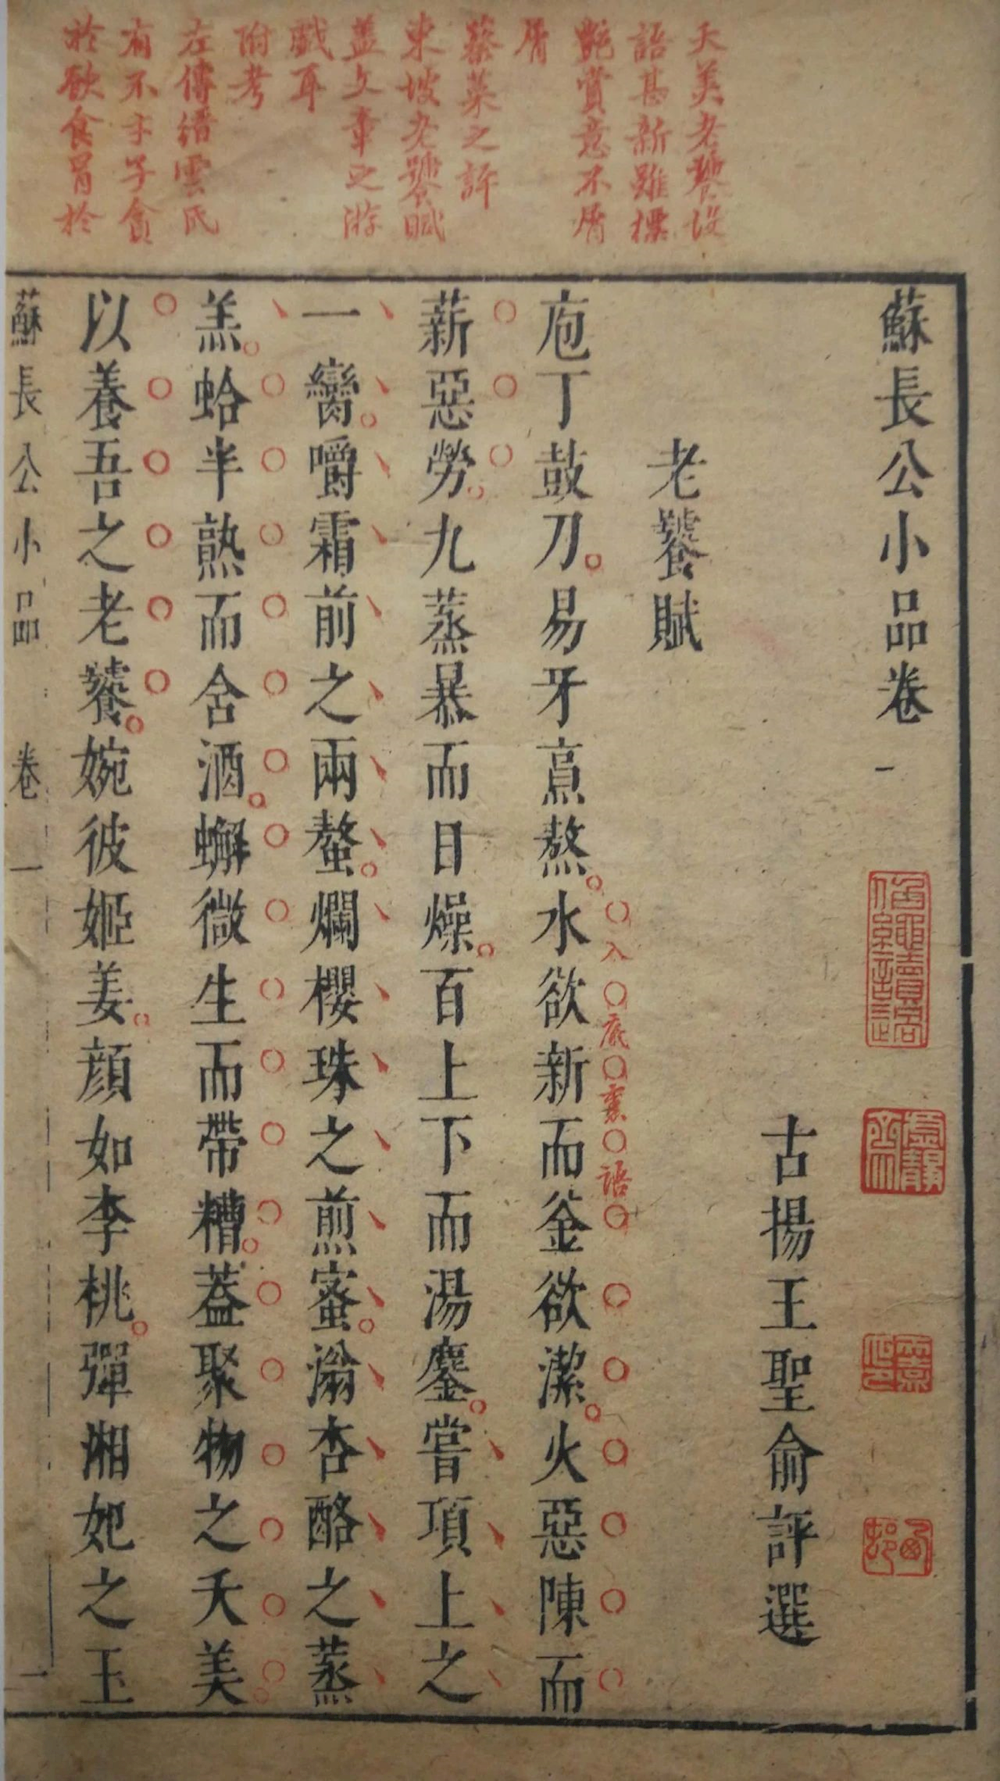 天美老饕設
語甚新雖標
艷賞意不屑
屑
蔡菜之許
東坡老饕賦
蓋文章之游
戲耳
附考
左傳縉雲氏
有不才子貪
於飲食冐於
蘇長公小品卷一
古揚王聖俞評選
老饕賦
庖丁鼓刀易牙烹熬水欲新而釜欲潔火惡陳而
入底裏語
薪惡勞九蒸暴而日燥百上下而湯鏖嘗項上之
一臠嚼霜前之兩螯爛櫻珠之煎蜜滃杏酪之蒸
羔蛤半熟而含酒蠏微生而帶糟蓋聚物之夭美
以養吾之老饕婉彼姬姜顏如李桃彈湘妃之玉
蘇長公小品 卷一 一